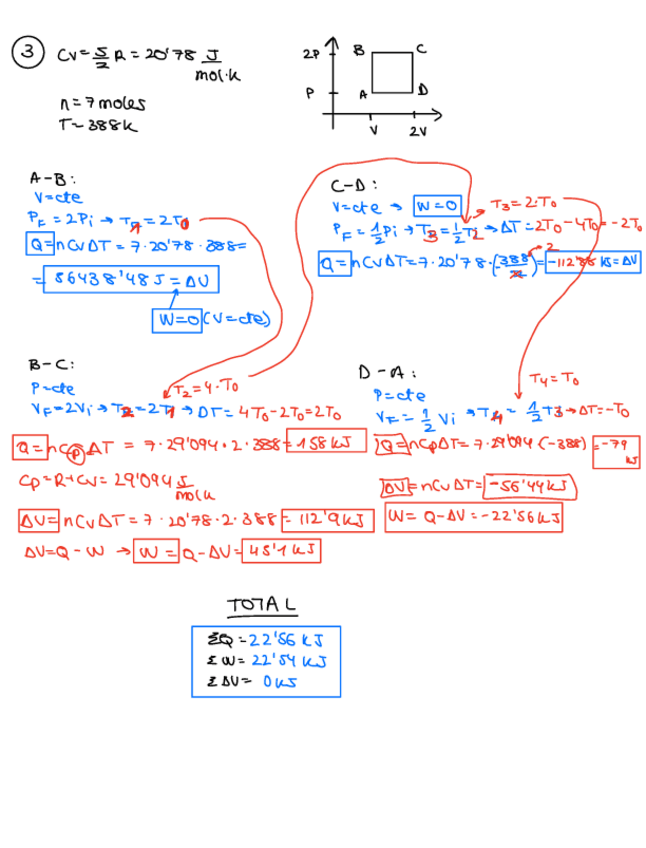 3 Cv = 5/2 R = 20'78 J/mol·k
n = 7 moles
T = 388k
2P B C
P A D
V 2V
A-B:
V=cte
PF = 2Pi → T1 = 2T0
Q = nCvΔT = 7·20'78·388=
= 56438'48 J = ΔU
W=0 (V=cte)
C-D:
V=cte → W=0
T3 = 2·T0
PF = 1/2 Pi → T3 = 1/2 T2 → ΔT = 2T0 - 4T0 = -2T0
2
Q = nCvΔT = 7·20'78·(-388/2) = -112'88 kJ = ΔU
B-C:
P=cte
T2 = 4·T0
VF = 2Vi → T2 = 2T1 → ΔT = 4T0 - 2T0 = 2T0
Q = nCpΔT = 7·29'094·2·388 = 158 kJ
Cp = R+Cv = 29'094 J/molk
ΔU = nCvΔT = 7·20'78·2·388 = 112'9 kJ
ΔU = Q - W → W = Q - ΔU = 45'1 kJ
D-A:
T4 = T0
P=cte
VF = 1/2 Vi → T4 = 1/2 T3 → ΔT = -T0
Q = nCpΔT = 7·29'094 (-388) = -79 kJ
ΔU = nCvΔT = -56'44 kJ
W = Q - ΔU = -22'56 kJ
TOTAL
ΣQ = 22'56 kJ
ΣW = 22'54 kJ
ΣΔU = 0 kJ